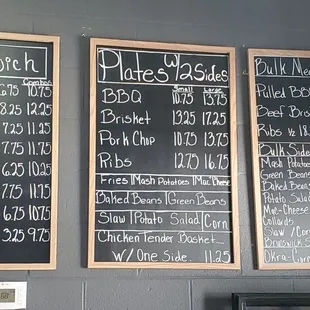 wich
Combos
6.75 10.75
8.25 12.25
7.75 11.25
7.75 11.25
7.75 11.25
6.25 10.25
7.75 11.25
6.75 10.75
3.25 9.75
Plates W/2 Sides
Small Large
BBQ 10.75 13.75
Brisket 13.25 17.25
Pork Chop 10.75 13.75
Ribs 12.75 16.75
Fries | Mash Potatoes | Mac'Cheese
Baked Beans | Green Beans
Slaw | Potato Salad | Corn
Chicken Tender Basket
W/ One Side 11.25
Bulk Mea
Pulled B
Beef Bris
Ribs ½
Bulk Side
Mash Potato
Green Beans
Baked Beans
Potato Salad
Mac-Cheese
Collards
Slaw/Corn
Brunswick S
Okra-Corn